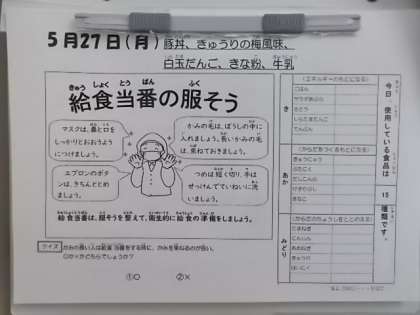 5月27日(月) 豚丼、きゅうりの梅風味、
白玉だんご、きな粉、牛乳
きゅう しょく とう ばん ふく
給食当番の服そう
マスクは、鼻と口を
しっかりとおおうよう
につけましょう。
かみの毛は、ぼうしの中に
入れましょう。長いかみの毛
は、束ねておきましょう。
エプロンのボタ
ンは、きちんととめ
ましょう。
つめは短く切り、手は
せっけんでていねいに洗
いましょう。
給食当番は、服そうを整えて、衛生的に給食の準備をしましょう。
クイズ
かみの長い人は給食当番をする時に、かみを束ねるのが良い。
○か×かどちらでしょうか?
①○ ②×
今日、使用している食品は 15 種類です。
き
(エネルギーのもとになる)
ごはん
さとう
でんぷん
あか
(からだをつくるもとになる)
ぎゅうにゅう
きなこ
みどり
(からだのちょうしをととのえる)
たまねぎ
にんじん
きゅうり
にんにく